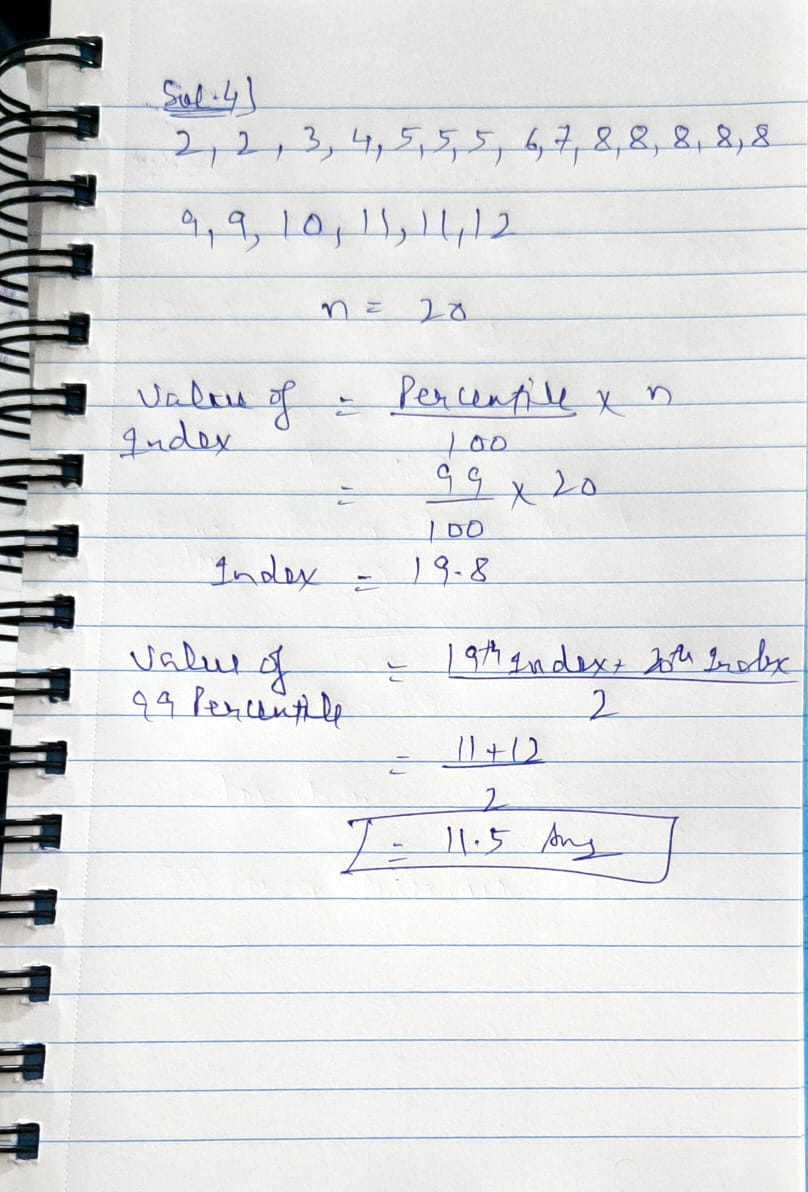 Sol.4)
2, 2, 3, 4, 5, 5, 5, 6, 7, 8, 8, 8, 8, 8
9, 9, 10, 11, 11, 12
n = 20
Value of Index = Percentile / 100 × n
= 99 / 100 × 20
Index = 19.8
Value of 99 Percentile = 19th Index + 20th Index / 2
= 11+12 / 2
= 11.5 Ans